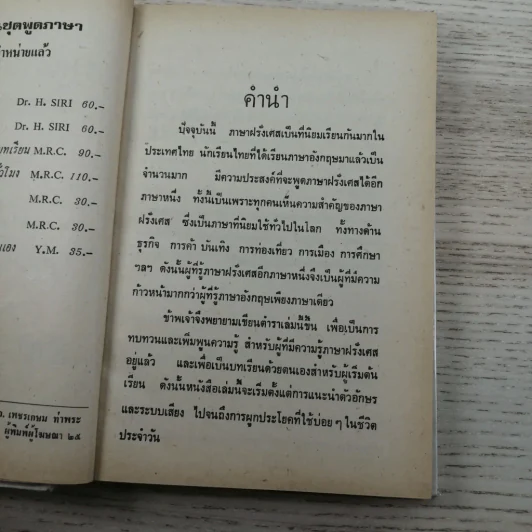 ชุดพูดภาษา
หน่ายแล้ว
Dr. H. SIRI 60.-
Dr. H. SIRI 60.-
บทเรียน M.R.C. 90.-
M.R.C. 110.-
M.R.C. 30.-
M.R.C. 30.-
Y.M. 35.-
เพชรเกษม ท่าพระ
ผู้พิมพ์ผู้โฆษณา ๒๕
คำนำ
ปัจจุบันนี้ ภาษาฝรั่งเศสเป็นที่นิยมเรียนกันมากใน
ประเทศไทย นักเรียนไทยที่ได้เรียนภาษาอังกฤษมาแล้วเป็น
จำนวนมาก มีความประสงค์ที่จะพูดภาษาฝรั่งเศสได้อีก
ภาษาหนึ่ง ทั้งนี้เป็นเพราะทุกคนเห็นความสำคัญของภาษา
ฝรั่งเศส ซึ่งเป็นภาษาที่นิยมใช้ทั่วไปในโลก ทั้งทางด้าน
ธุรกิจ การค้า บันเทิง การท่องเที่ยว การเมือง การศึกษา
ฯลฯ ดังนั้นผู้ที่รู้ภาษาฝรั่งเศสอีกภาษาหนึ่งจึงเป็นผู้ที่มีความ
ก้าวหน้ามากกว่าผู้ที่รู้ภาษาอังกฤษเพียงภาษาเดียว
ข้าพเจ้าจึงพยายามเขียนตำราเล่มนี้ขึ้น เพื่อเป็นการ
ทบทวนและเพิ่มพูนความรู้ สำหรับผู้ที่มีความรู้ภาษาฝรั่งเศส
อยู่แล้ว และเพื่อเป็นบทเรียนด้วยตนเองสำหรับผู้เริ่มต้น
เรียน ดังนั้นหนังสือเล่มนี้จะเริ่มตั้งแต่การแนะนำตัวอักษร
และระบบเสียง ไปจนถึงการผูกประโยคที่ใช้บ่อย ๆ ในชีวิต
ประจำวัน